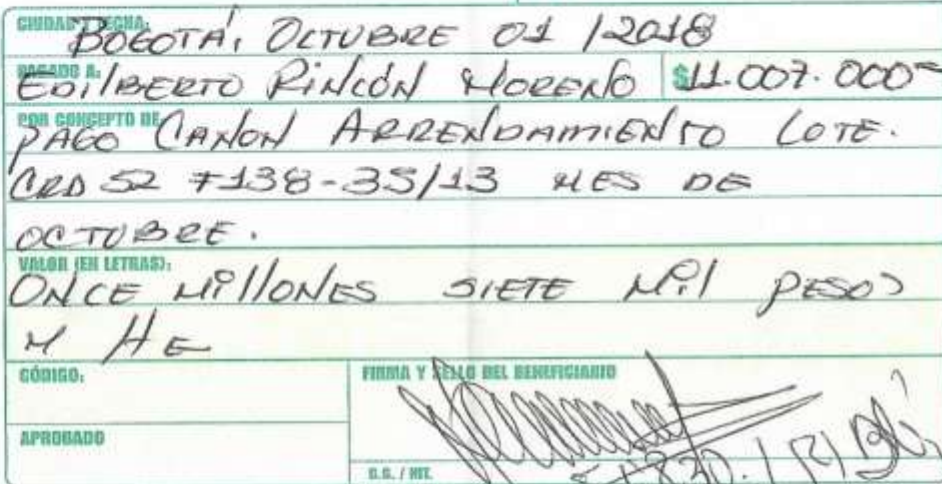 CIUDAD Y FECHA: BOGOTÁ, OCTUBRE 01 / 2018
PAGADO A: EDILBERTO RINCÓN MORENO $11.007.000=
POR CONCEPTO DE: PAGO CANON ARRENDAMIENTO LOTE.
CRA 52 #138-35/13 MES DE
OCTUBRE.
VALOR (EN LETRAS):
ONCE MILLONES SIETE MIL PESOS
M
CÓDIGO:
FIRMA Y SELLO DEL BENEFICIARIO
APROBADO
C.C. / NIT.